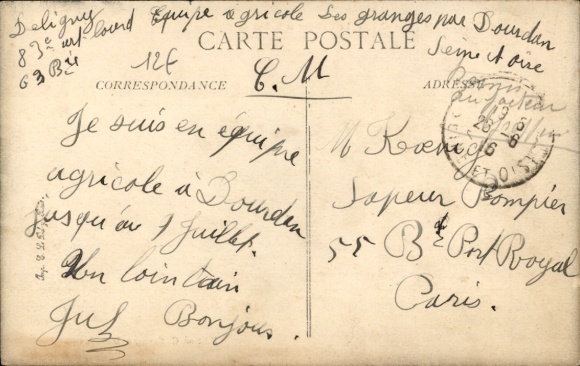 Deligny Equipe agricole Les granges par Dourdan
83e art lourd Seine et Oise
63 Bie
CARTE POSTALE
12f
C. M
CORRESPONDANCE
ADRESSE
Remis
au facteur
Je suis en équipe
agricole à Dourdan
Jusqu'au 1 Juillet.
Un lointain
Bonjour.
M Kœnig
Sapeur Pompier
55 Bd Port Royal
Paris.
ET OISE